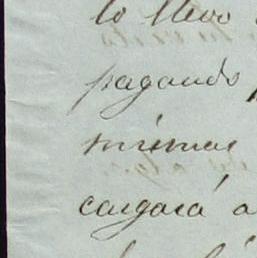 lo llevo
pagando
mismas
cargará a